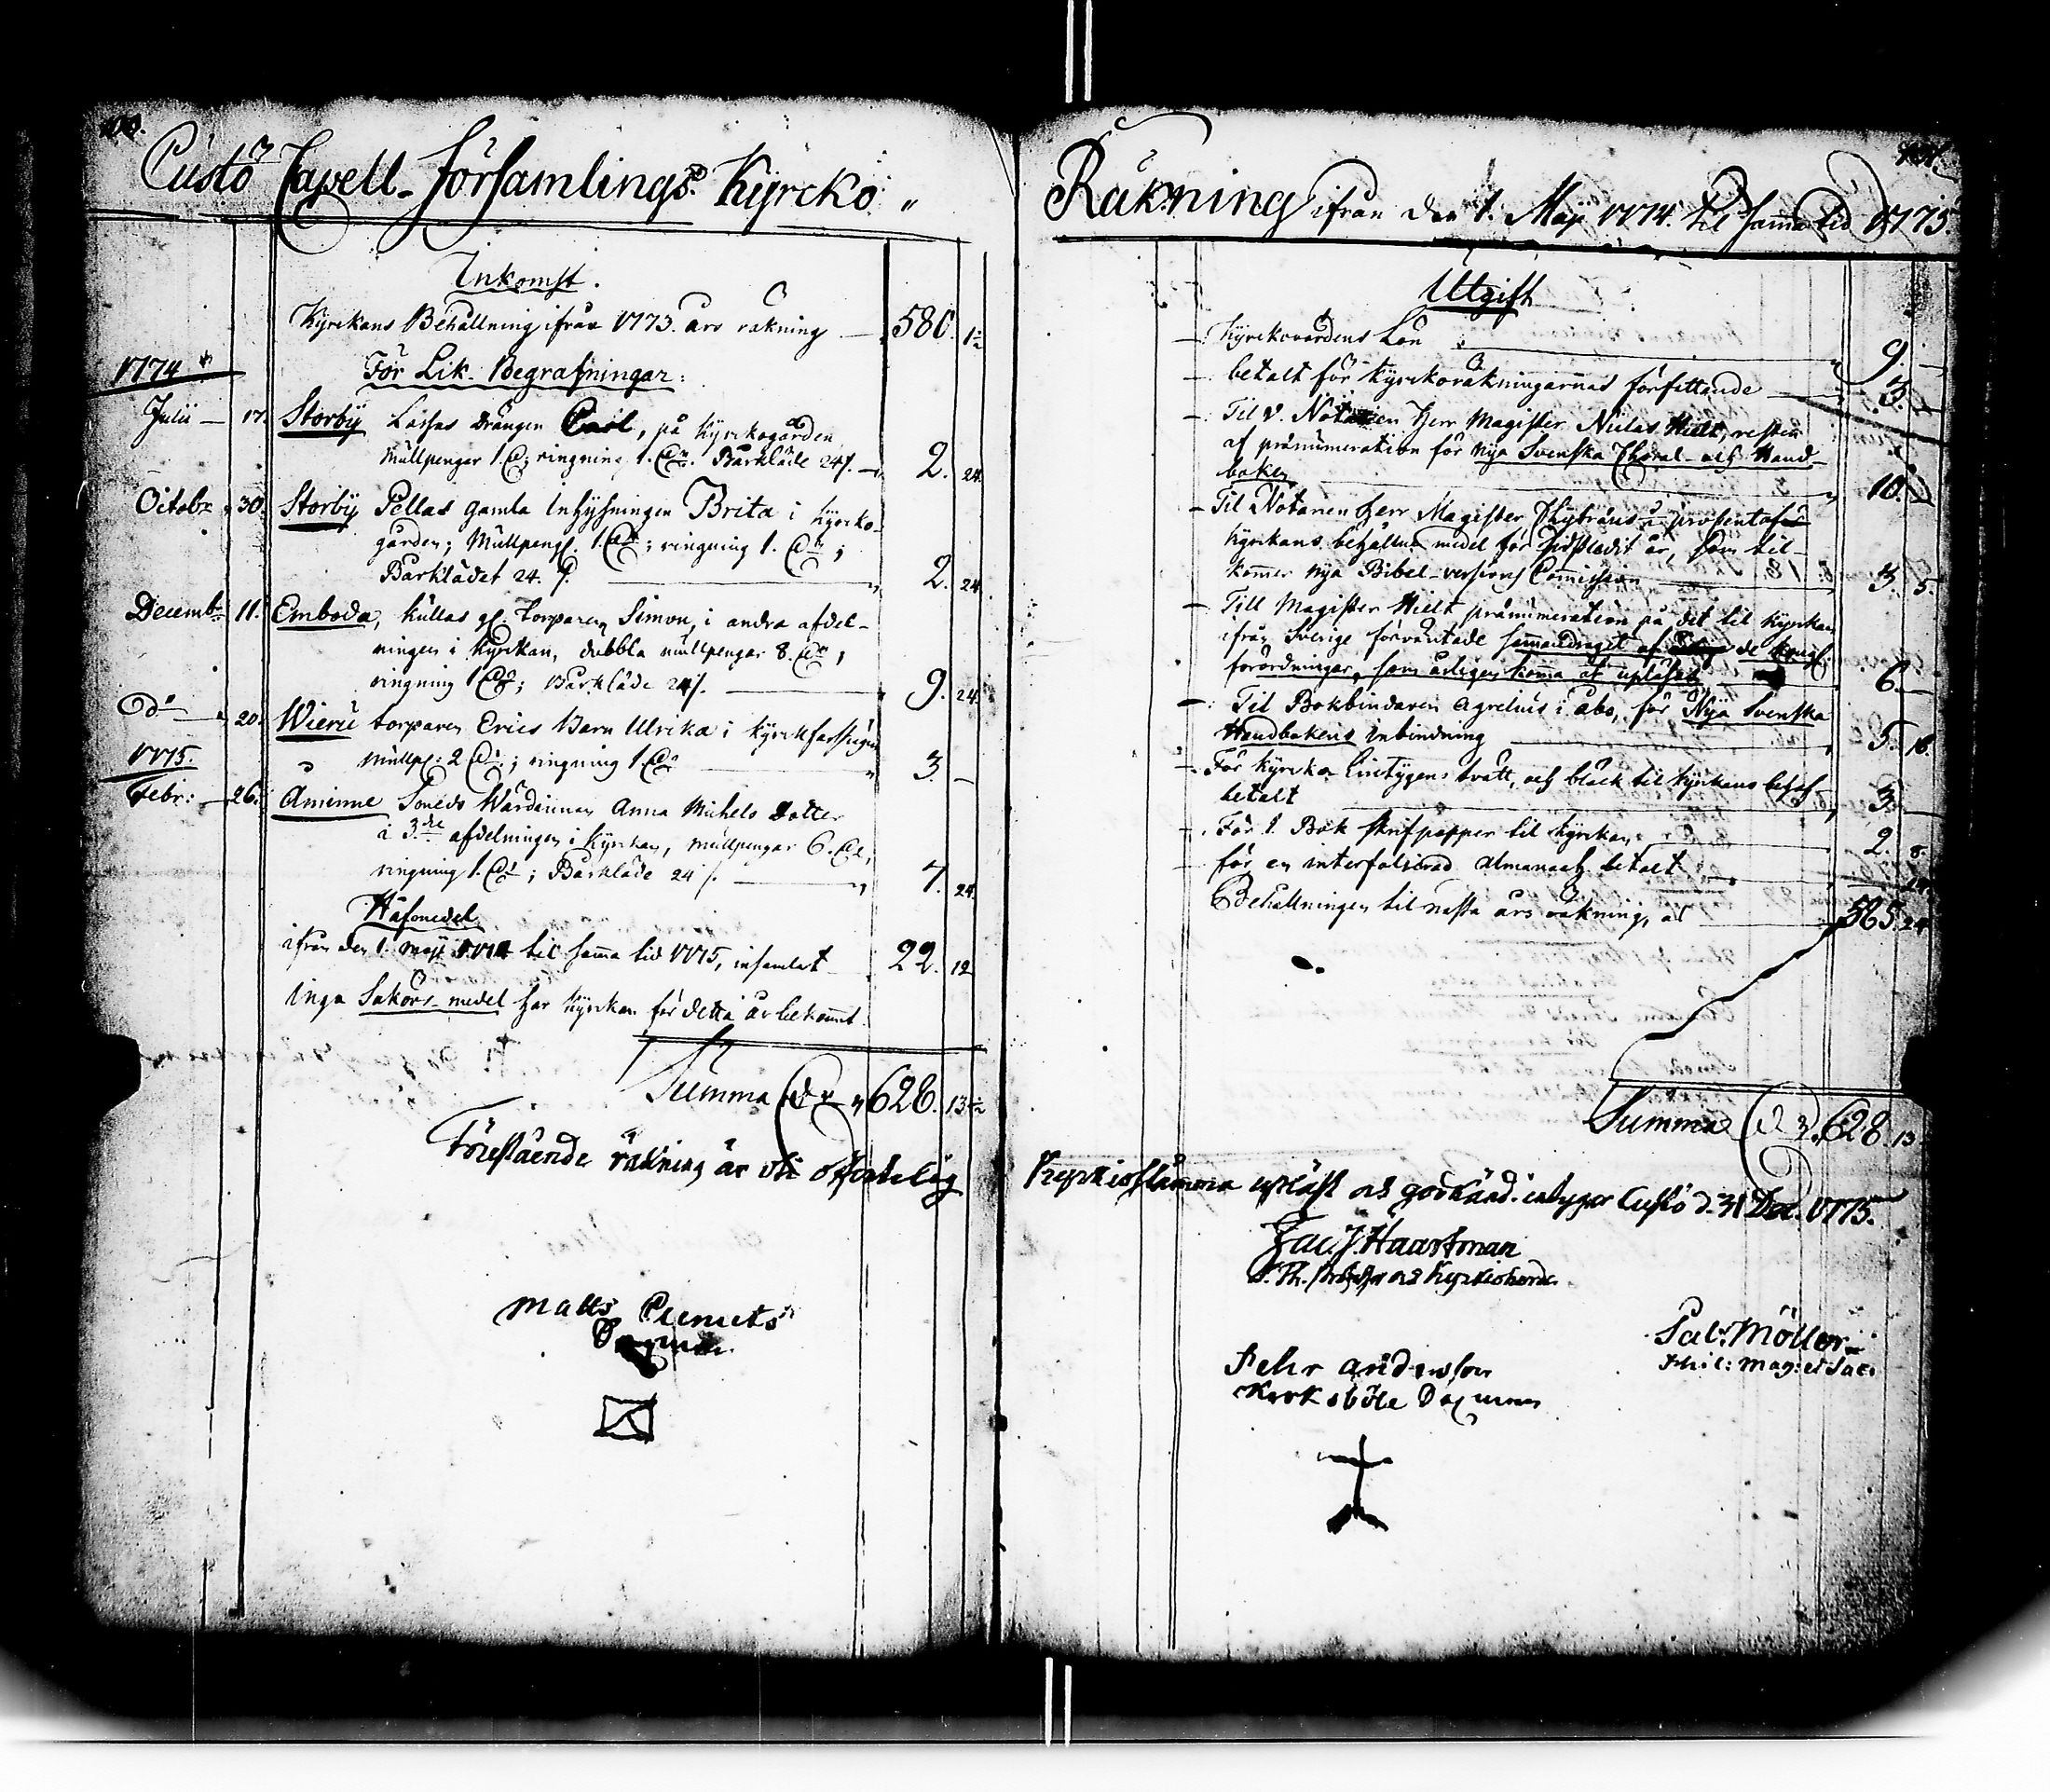 Custö Capell-Församlings Kyrcko
Inkomst.
Kyrckans Behållning ifrån 1773. års räkning — 580. 1½
1774
För Lik-Begrafningar:
Julii — 17. Storby Lassas Drängen Carl, på Kyrckogården
mullpengar 1. ringning 1. Bårkläde 24/. — 2. 24
Octobr 30. Storby Pellas gamla Inhyshningen Brita i kyrcko-
gården; Mullpeng. 1. ; ringning 1. ;
Bårklädet 24. — 2. 24
Decembr 11. Emboda, kullas gl. torparen Simon, i andra afdel-
ningen i kyrkan, dubbla mullpengar 8. ;
ringning 1 ; Bårkläde 24/. — 9. 24
Do — 20. Wieru torparen Erics Barn Ulrika i kyrck
mullp: 2 ; ringning 1. — 3. —
1775.
Febr: — 26. Åminne Wärdinnan Anna Michels Dotter
i 3:die afdelningen i kyrkan, mullpengar 6.
ringning 1. ; Bårkläde 24/. — 7. 24
Håfvmedel
ifrån den 1. Maji 1774 til samma tid 1775, insamlat — 22. 12
Inga Saköres-medel har kyrkan för detta år bekommit.
Summa 628. 13½
Föreståande räkning är vid offentelig
Matts Clemets
Räkning ifrån den 1. Maji 1774. til samma tid 1775.
Utgift
Kyrckovärdens Lön — 9. —
betalt för kyrckoräkningarnas författande — 3. —
Til V. Notarien Herr Magister Niclas Hielt, resten
af prænumeration för nya Svenska Choral- och Hand-
boken — 10. —
Til Notarien Herr Magister
kyrkans behållna medel för år, som til-
kommer nya Bibel-versions Commission — 3. 5.
Till Magister Hielt prænumeration på det til kyrkan
ifrån Sverige förväntade sammandraget af de kongl.
förordningar, som årligen komma at upläsas — 6. —
Til Bokbindaren Agrelius i Åbo, för Nya Svenska
Handbokens inbindning — 5. 16.
För kyrcko Linetygens tvätt, och bläck til kyrkans behof
betalt — 3. —
För 1. Bok skrifpapper til kyrkan — 2. 8.
för en interfolierad Almanach betalt
Behållningen til nästa års räkning, är — 585. 24
Summa 628. 13
Kyrkiostämma upläst och godkänd. intygar Custö d. 31 Dec. 1775.
Jac. J. Haartman
Kyrkioherde
Sal. Möller
Phil: Mag: et Sac:
Pehr Andersson